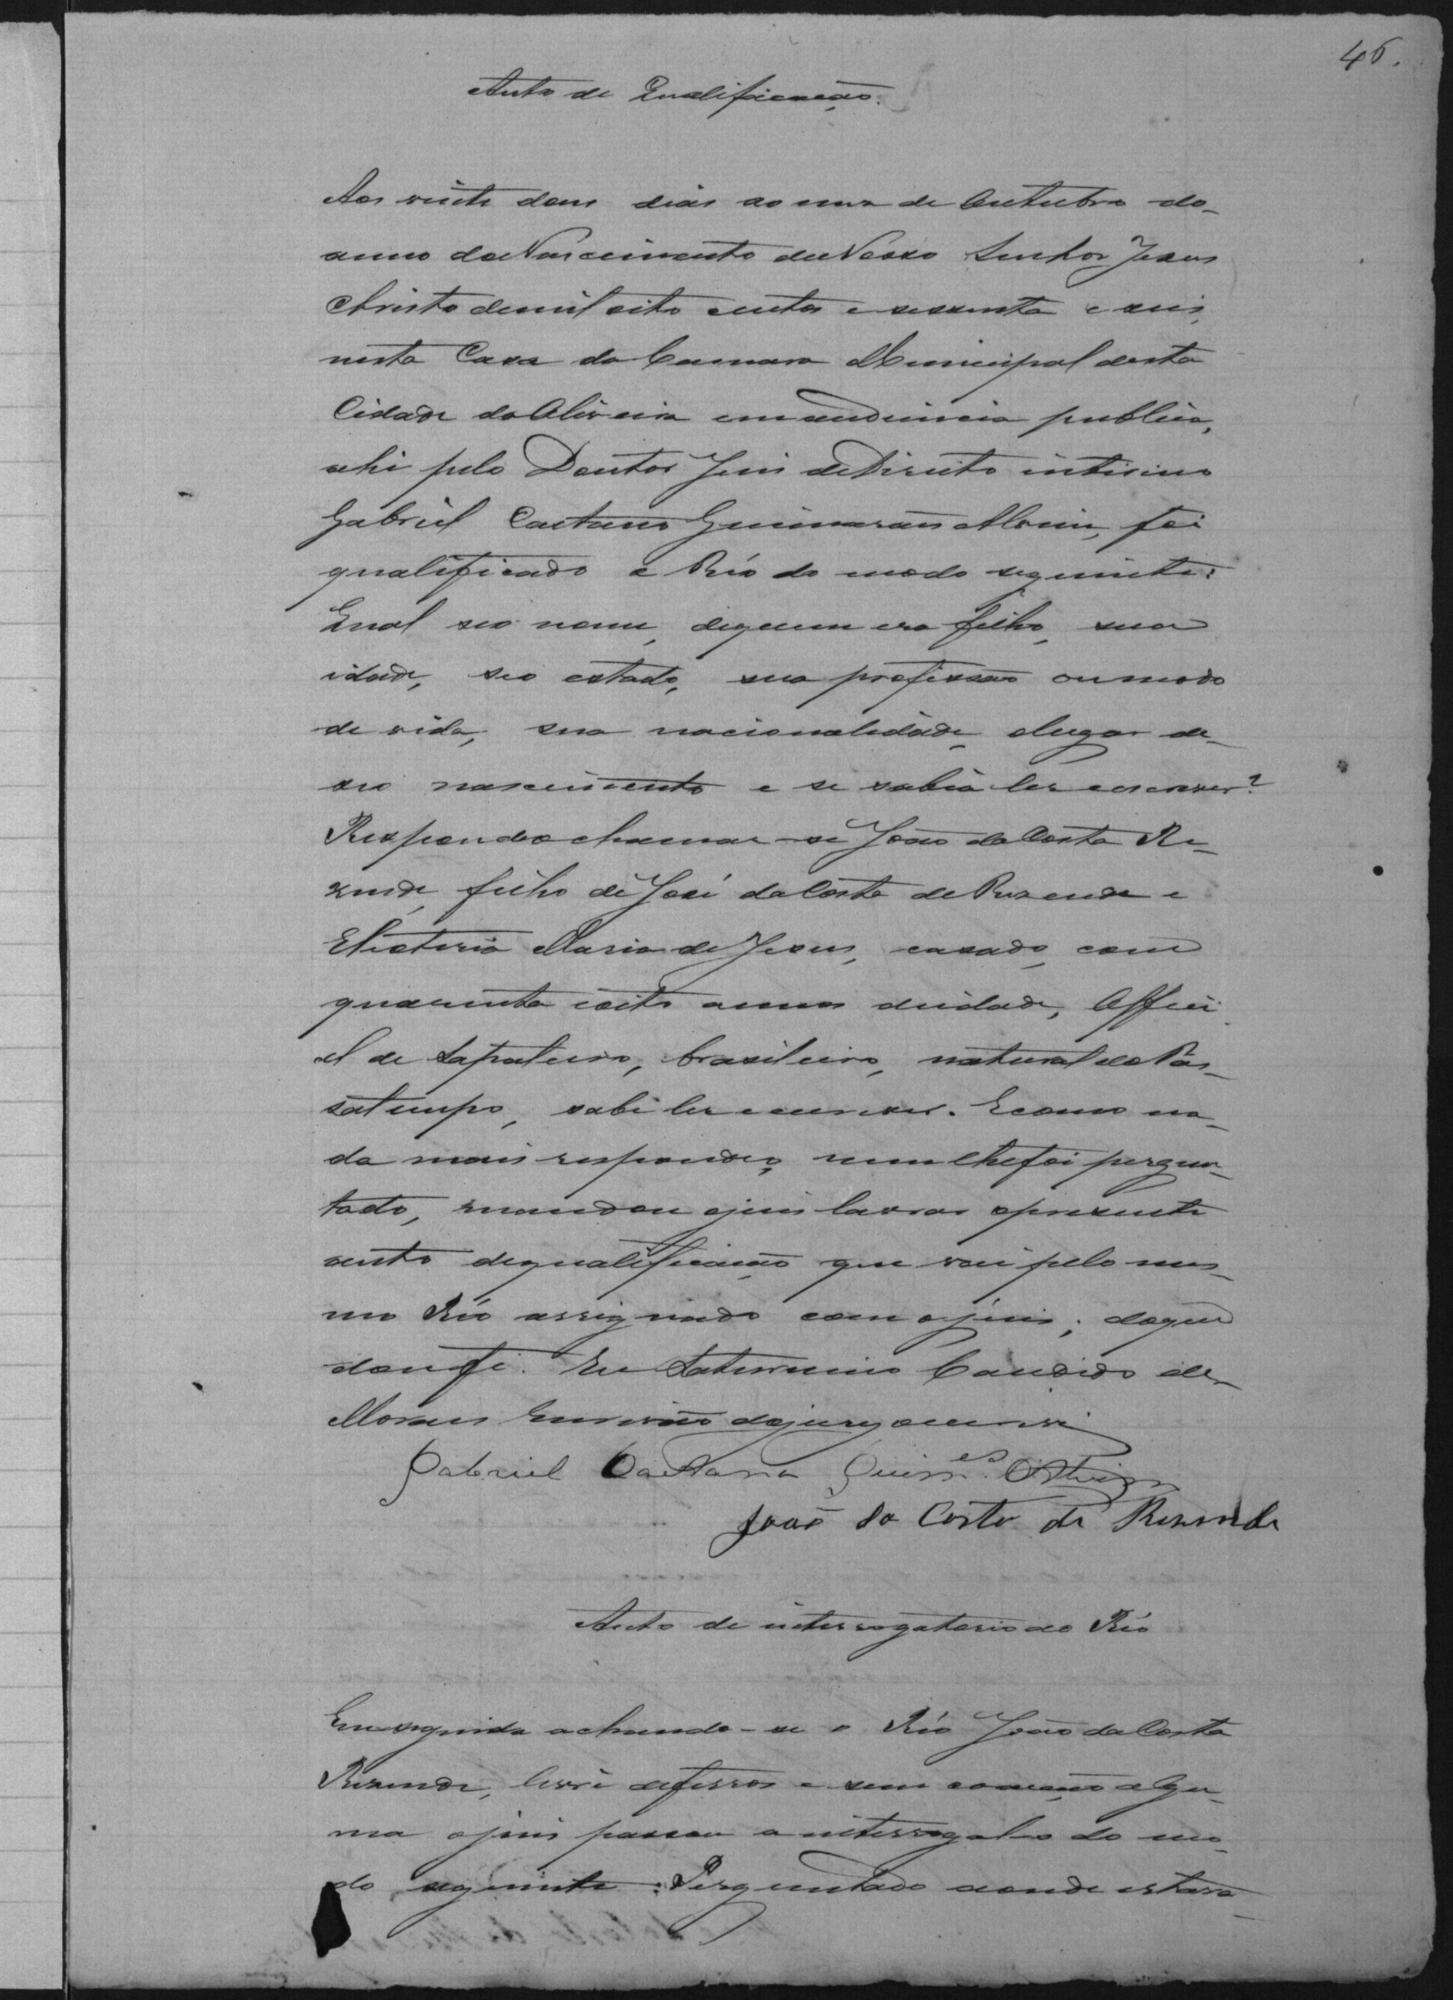 46.
Auto de Qualificação.
Aos vinte dous dias do mes de Outubro do
anno do Nascimento de Nosso Senhor Jesus
Christo de mil oito centos e sessenta e seis,
nesta Casa da Camara Municipal desta
Cidade da Oliveira em audiencia publica,
ahi pelo Doutor Juis de Direito interino
Gabriel Caetano Guimarães, foi
qualificado o Réo do modo seguinte:
Qual seo nome, de quem era filho, sua
idade, seo estado, sua profissão ou modo
de vida, sua nacionalidade, o lugar de
seo nascimento e se sabia ler e escrever?
Respondeo chamar-se João da Costa Re-
zende, filho de José da Costa de Rezende e
Maria de Jesus, casado, com
quarenta e oito annos de idade, Offici-
al de Sapateiro, brasileiro, natural do Pas-
satempo, sabe ler e escrever. E como na-
da mais respondeo, nem lhe foi pergun-
tado, mandou o juis lavrar o presente
auto de qualificação que vai pelo mes-
mo Réo assignado com o juis; do que
dou fé. Eu Saturnino Candido de
Moraes Escrivão do jury o escrevi
Gabriel Caetano Guim.es
João da Costa de Rezende
Auto de interrogatorio do Réo
Em seguida achando-se o Réo João da Costa
Rezende, livre de ferros e sem coacção algu-
ma o juis passou a interrogal-o do mo-
do seguinte: Perguntado aonde estava